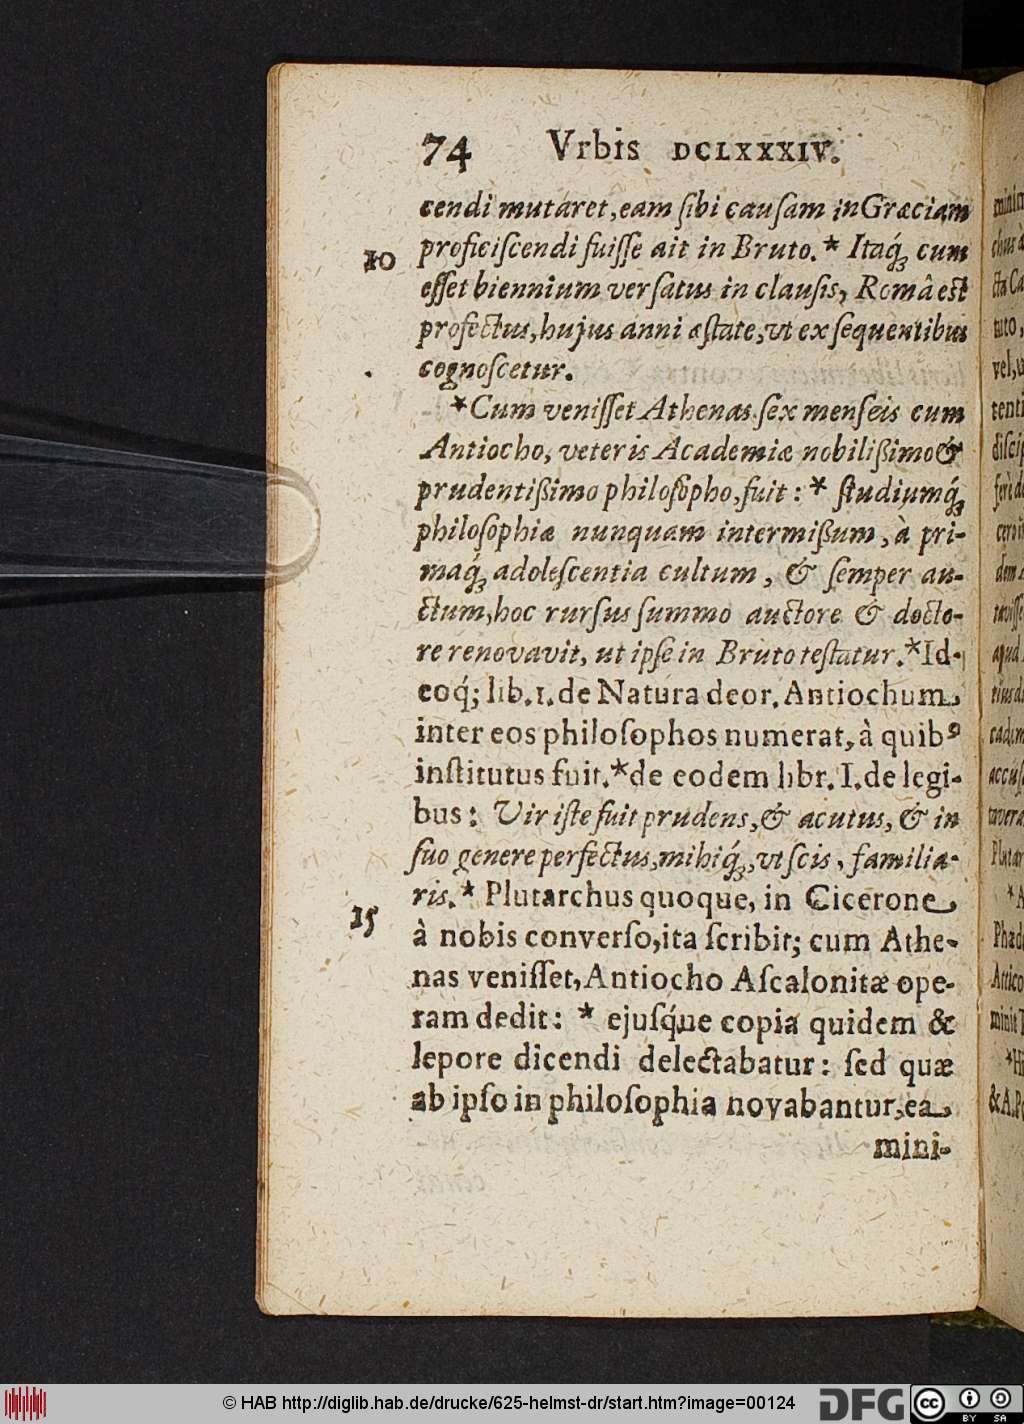 74 Vrbis DCLXXXIV.
cendi mutaret, eam ſibi cauſam in Græciam
10 proficiſcendi fuiſſe ait in Bruto. * Itaq́; cum
eſſet biennium verſatus in clauſis, Româ est
profectus, hujus anni æſtate, vt ex ſequentibus
cognoſcetur.
*Cum veniſſet Athenas. ſex menſeis cum
Antiocho, veteris Academiæ nobilißimo &
prudentißimo philoſopho, fuit: * ſtudiumq́;
philoſophiæ nunquam intermißum, à pri-
maq́; adoleſcentia cultum, & ſemper au-
ctum, hoc rurſus ſummo auctore & docto-
re renovavit, ut ipſe in Bruto teſtatur. *Id-
eoq́; lib. 1. de Natura deor. Antiochum
inter eos philoſophos numerat, à quibꝰ
inſtitutus fuit. *de eodem libr. I. de legi-
bus: Vir iſte fuit prudens, & acutus, & in
ſuo genere perfectus, mihiq́;, vt ſcis, familia-
ris. * Plutarchus quoque, in Cicerone
15 à nobis converſo, ita ſcribit; cum Athe-
nas veniſſet, Antiocho Aſcalonitæ ope-
ram dedit: * ejuſq́ue copia quidem &
lepore dicendi delectabatur: ſed quæ
ab ipſo in philoſophia novabantur, ea
mini-
© HAB http://diglib.hab.de/drucke/625-helmst-dr/start.htm?image=00124
DFG
cc
BY SA